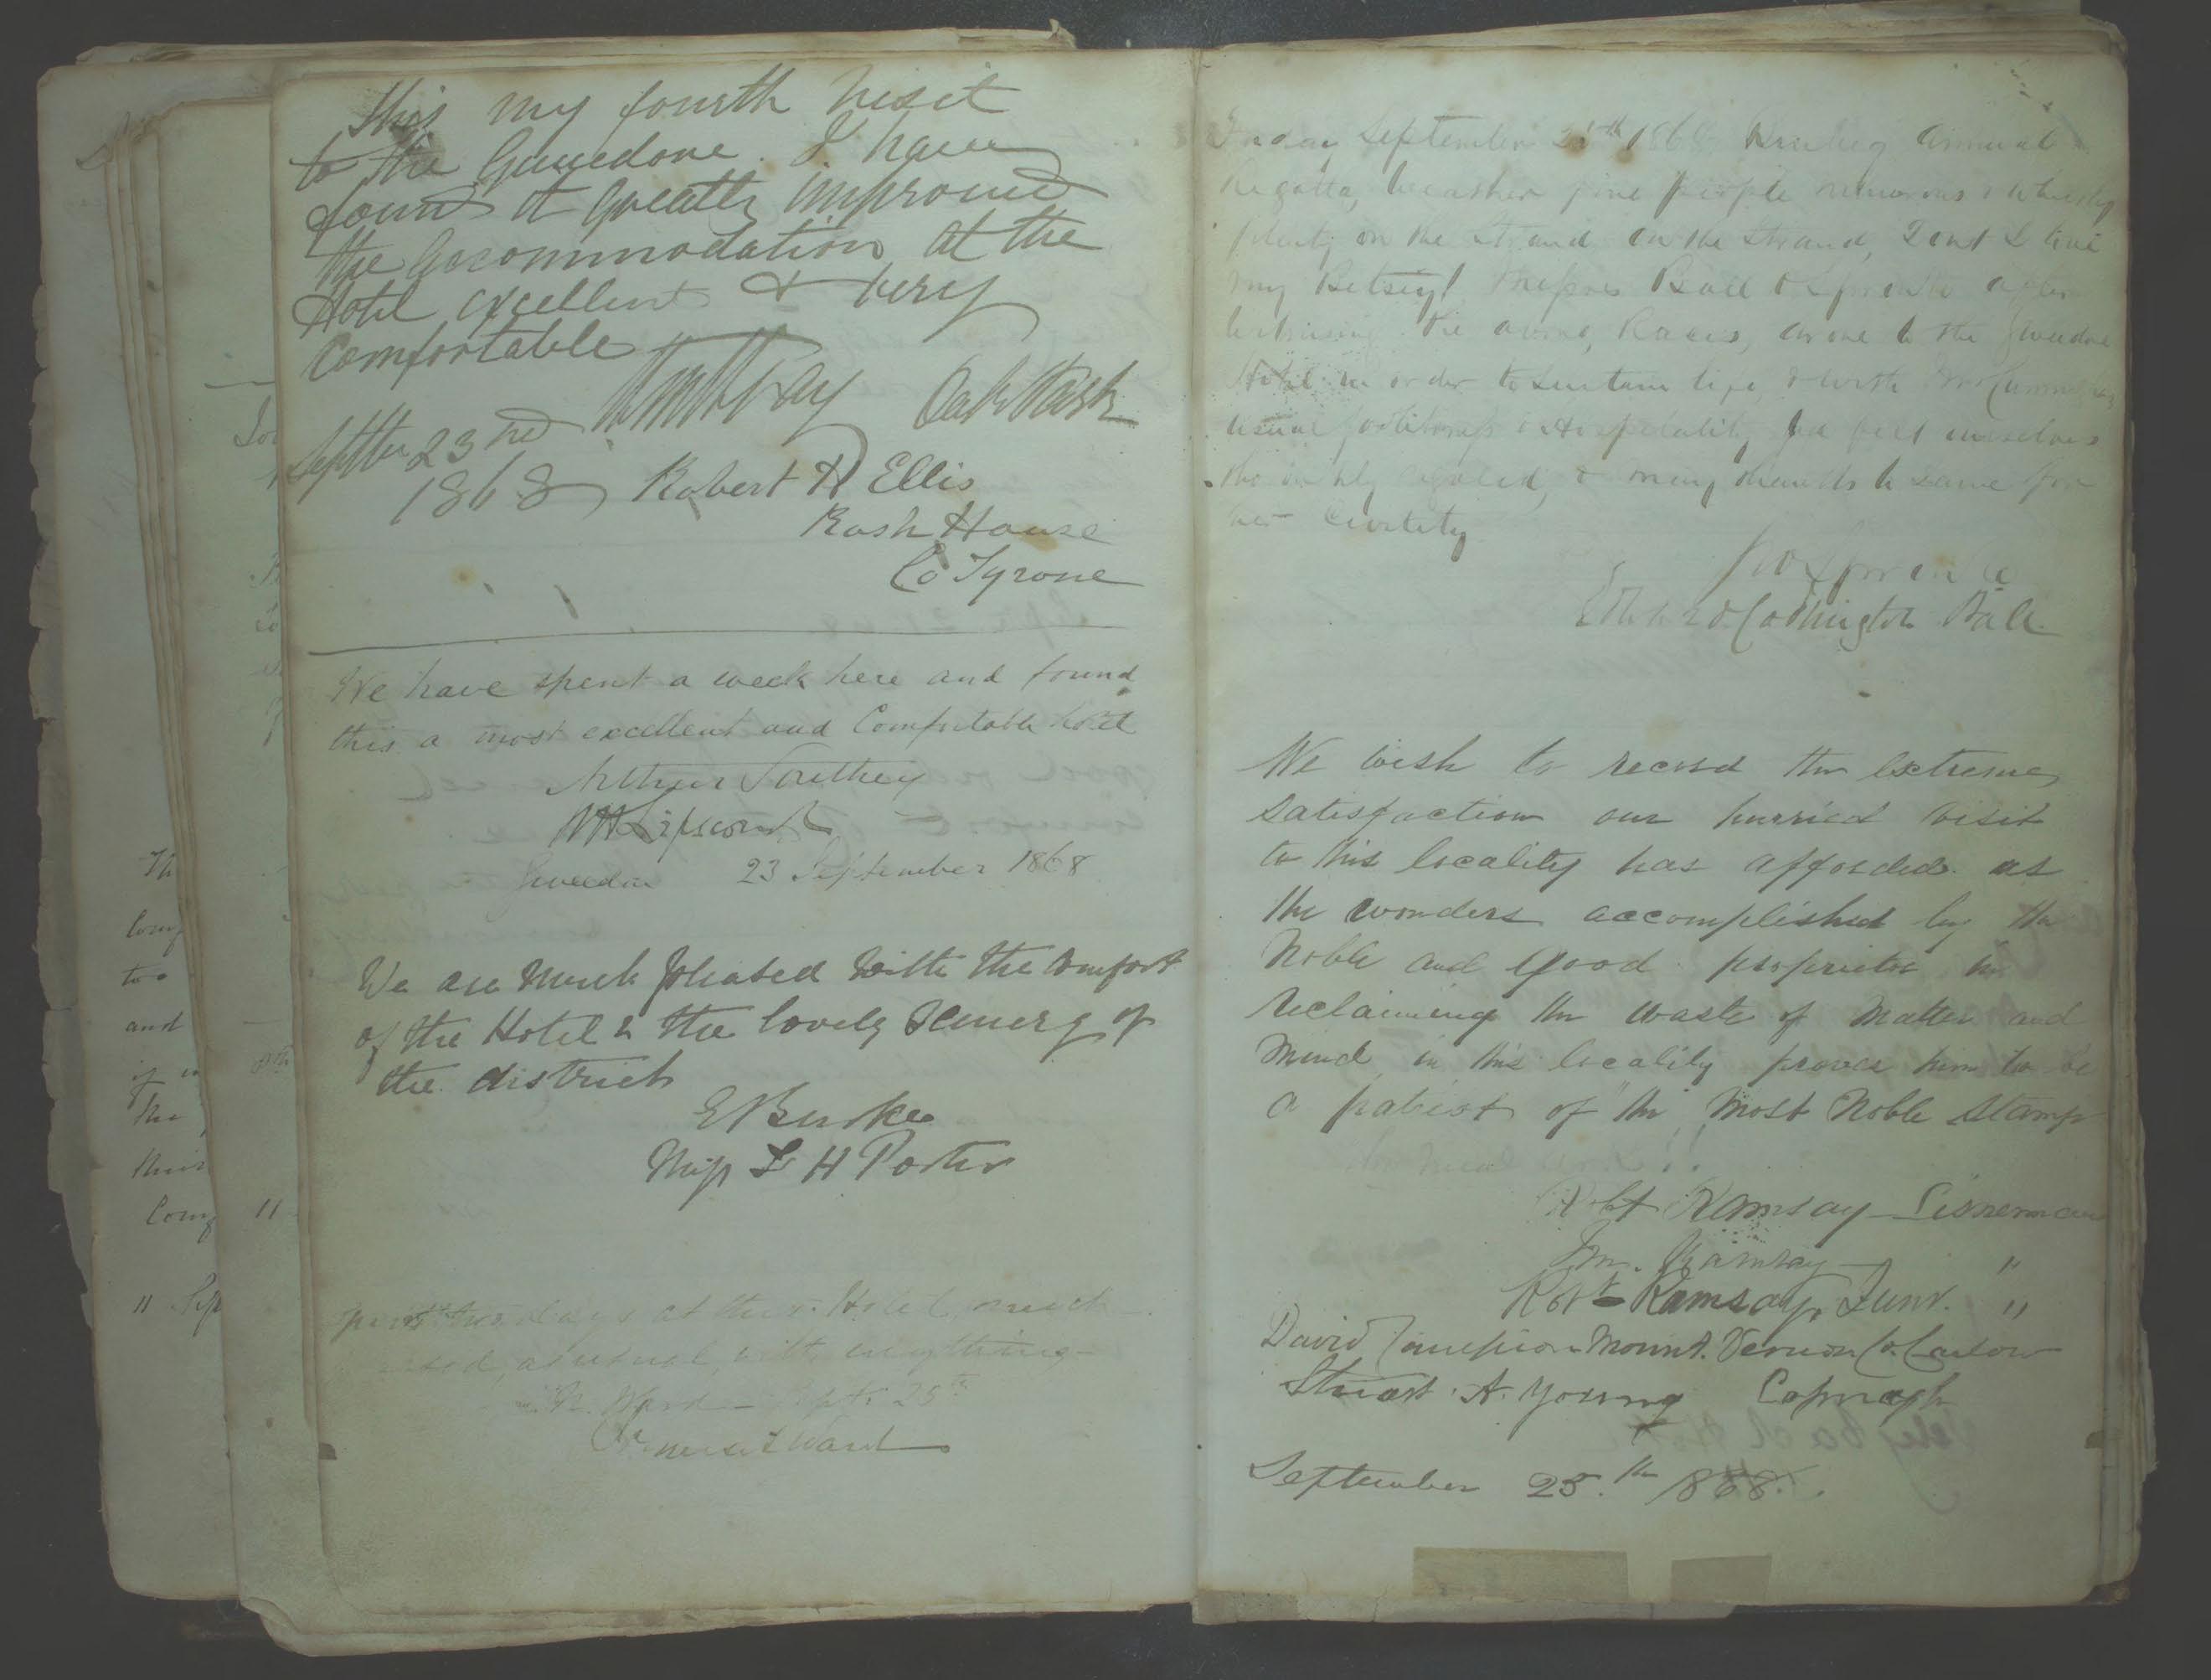 This my fourth visit
to the Gweedore. I have
found it greatly improved
the accommodation at the
Hotel excellent & very
comfortable
Oak Park
Septber 23rd
1868
Robert H Ellis
Rash House
Co Tyrone
We have spent a week here and found
this a most excellent and Comfortable hotel
Arthur Southey
W Lipscomb
Gweedore 23 September 1868
We are Much pleased with the comfort
of the Hotel & the lovely scenery of
the district
E Burke
Miss L H Porter
two days at this Hotel, much
as usual, with everything
Ward - Septr 25th
Somerset Ward
Friday September 25th 1868 Annual
Regatta, weather fine people numerous & whiskey
plenty on the Strand on the Strand, Dont I love
my Betsey! Messrs Ball & after
witnessing the Races, drove to the Gweedore
Hotel in order to sustain life, & with
usual politeness & Hospitality
& many thanks to same for
her Civility
Edward Codrington Ball
We wish to record the extreme
satisfaction our hurried visit
to this locality has afforded us
the wonders accomplished by the
Noble and good proprietor in
reclaiming the waste of matter and
mind in this locality proves him to be
a patriot of the most Noble stamp
Robt Ramsay
Jm. Ramsay "
Robt Ramsay, Junr. "
David Mount Vernon Co. Carlow
Stuart A. Young
September 25.th 1868.